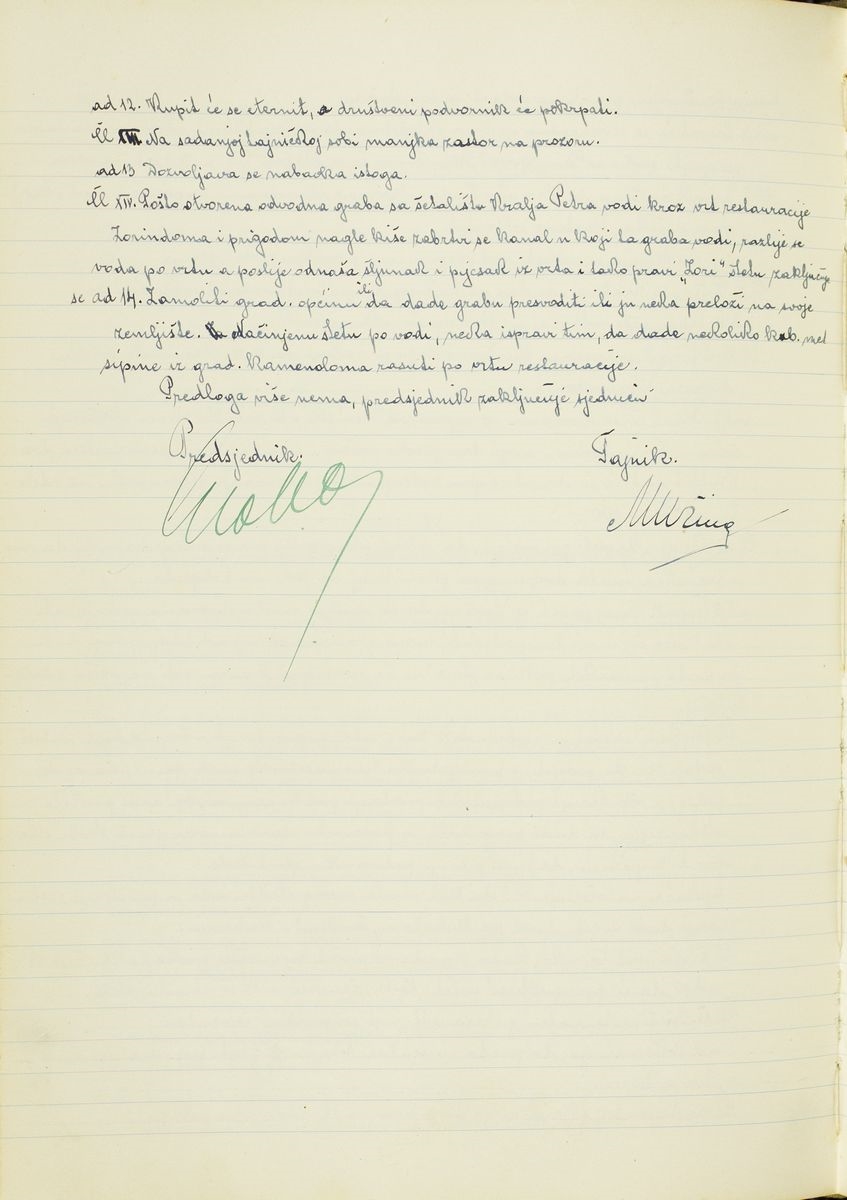 ad 12. Kupit će se eternit, a društveni podvornik će pokrpati.
Čl XIII Na sadanjoj tajničkoj sobi manjka zastor na prozoru.
ad 13 Dozvoljava se nabavka istoga.
Čl XIV. Pošto otvorena odvodna graba sa šetalištu Kralja Petra vodi kroz vrt restauracije
Zorindoma i prigodom nagle kiše zabrtvi se kanal u koji ta graba vodi, razlije se
voda po vrtu a poslije odnaša šljunak i pijesak iz vrta i tako pravi „Zori" štetu zaključuje
se ad 14. Zamoliti grad. općinu ili da dade grabu presvoditi ili ju neka preloži na svoje
zemljište. Načinjenu štetu po vodi, neka ispravi tim, da dade nekoliko kub. met
sipine iz grad. kamenoloma rasuti po vrtu restauracije.
Predloga više nema, predsjednik zaključuje sjednicu
Predsjednik. Tajnik.